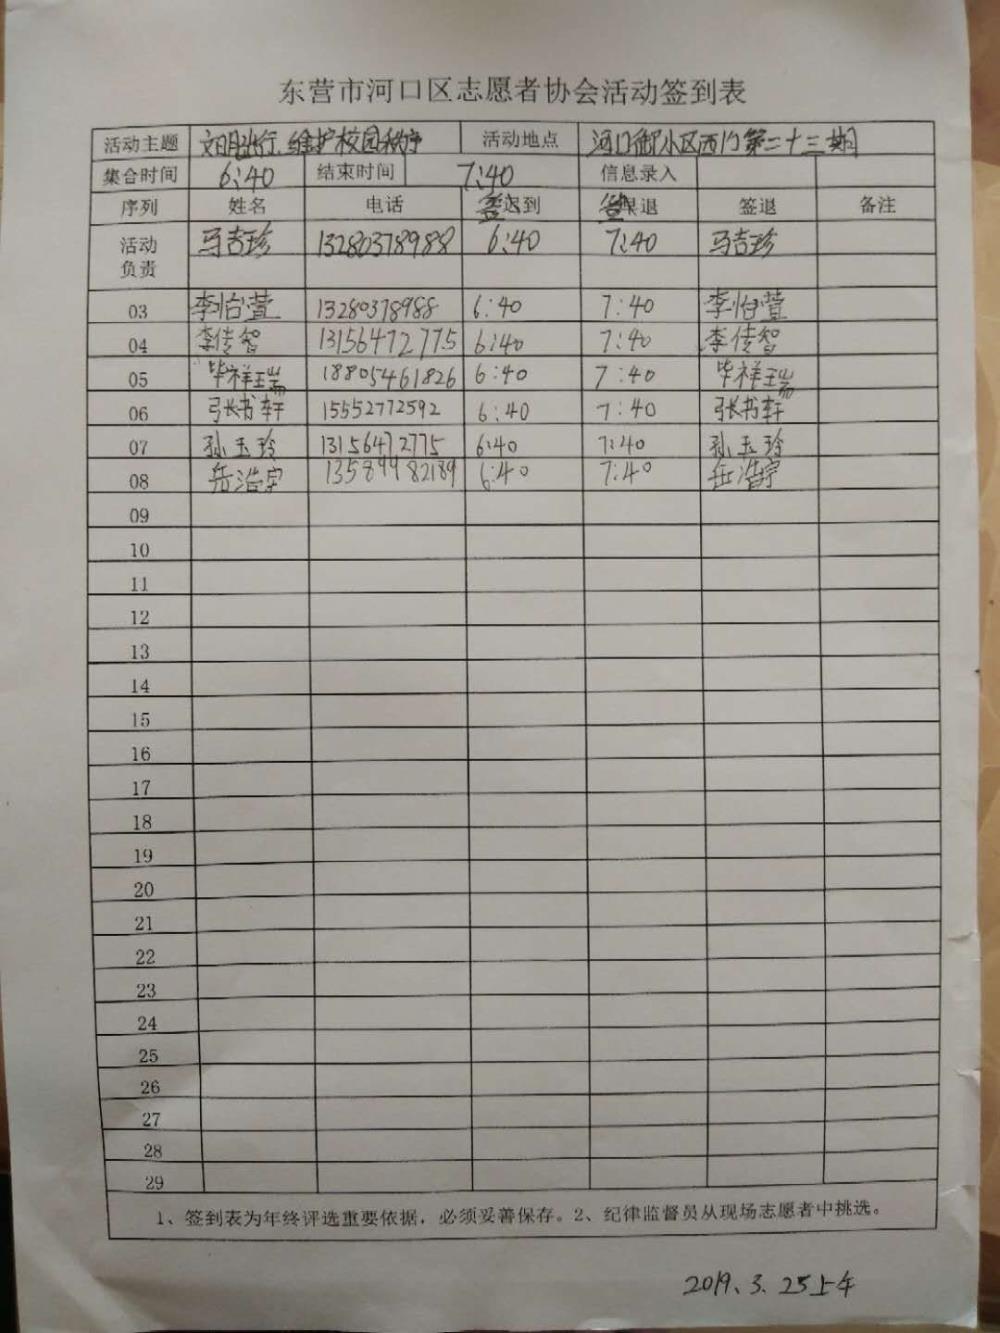 东营市河口区志愿者协会活动签到表
活动主题 文明出行、维护校园秩序 活动地点 河口 小区西门第二十三期
集合时间 6:40 结束时间 7:40 信息录入
序列 姓名 电话 到 退 签退 备注
活动负责 马吉珍 13280378988 6:40 7:40 马吉珍
03 李怡萱 13280378988 6:40 7:40 李怡萱
04 李传智 13156472775 6:40 7:40 李传智
05 毕祥瑞 18805461826 6:40 7:40 毕祥瑞
06 张书轩 15552772592 6:40 7:40 张书轩
07 孙玉玲 13156472775 6:40 7:40 孙玉玲
08 岳浩宇 13589982189 6:40 7:40 岳浩宇
09
10
11
12
13
14
15
16
17
18
19
20
21
22
23
24
25
26
27
28
29
1、签到表为年终评选重要依据，必须妥善保存。2、纪律监督员从现场志愿者中挑选。
2019、3.25上午